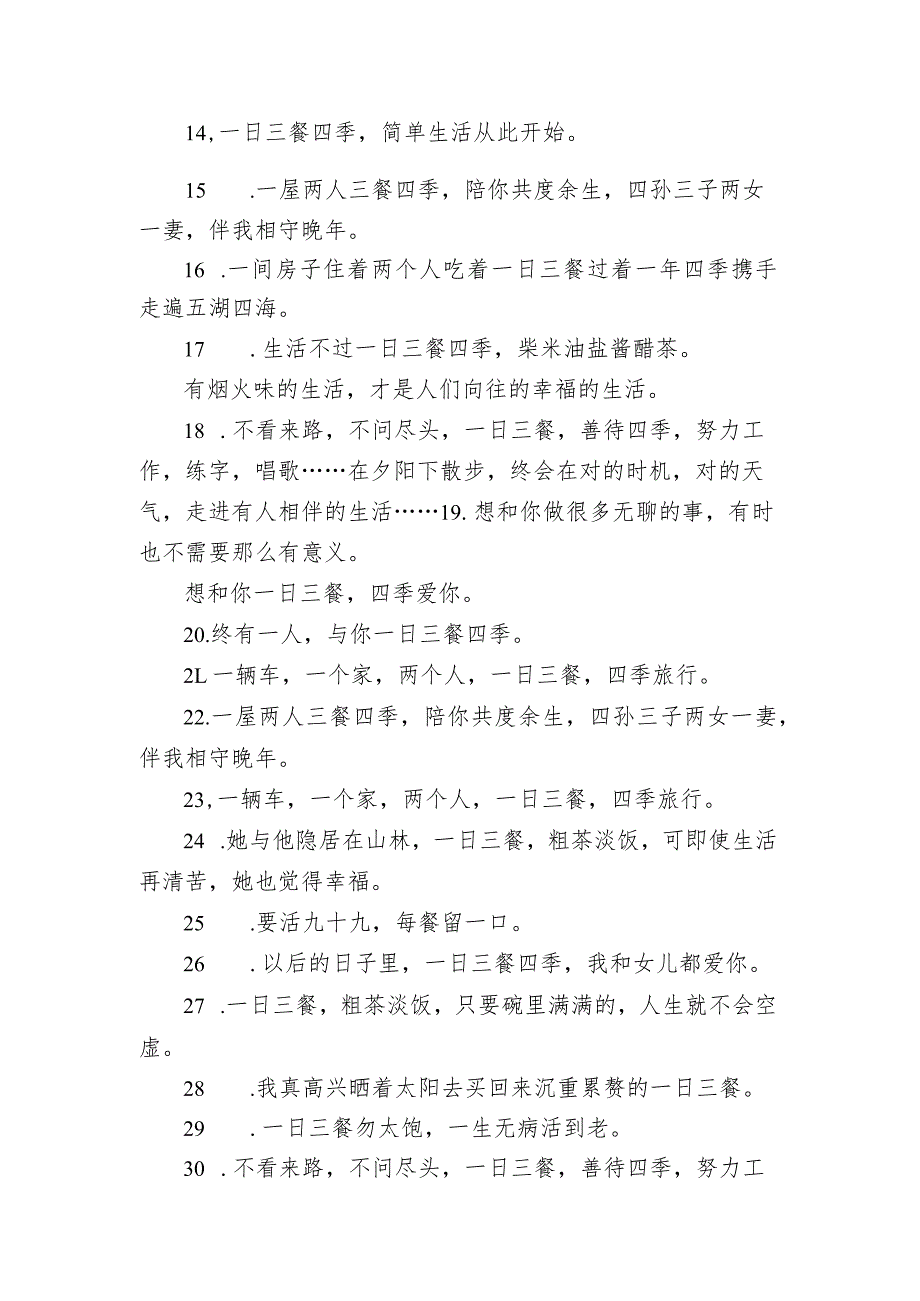 14,一日三餐四季，简单生活从此开始。
15 .一屋两人三餐四季，陪你共度余生，四孙三子两女
一妻，伴我相守晚年。
16 .一间房子住着两个人吃着一日三餐过着一年四季携手
走遍五湖四海。
17 .生活不过一日三餐四季，柴米油盐酱醋茶。
有烟火味的生活，才是人们向往的幸福的生活。
18 .不看来路，不问尽头，一日三餐，善待四季，努力工
作，练字，唱歌……在夕阳下散步，终会在对的时机，对的天
气，走进有人相伴的生活……19.想和你做很多无聊的事，有时
也不需要那么有意义。
想和你一日三餐，四季爱你。
20.终有一人，与你一日三餐四季。
2L一辆车，一个家，两个人，一日三餐，四季旅行。
22.一屋两人三餐四季，陪你共度余生，四孙三子两女一妻，
伴我相守晚年。
23,一辆车，一个家，两个人，一日三餐，四季旅行。
24 .她与他隐居在山林，一日三餐，粗茶淡饭，可即使生活
再清苦，她也觉得幸福。
25 .要活九十九，每餐留一口。
26 .以后的日子里，一日三餐四季，我和女儿都爱你。
27 .一日三餐，粗茶淡饭，只要碗里满满的，人生就不会空
虚。
28 .我真高兴晒着太阳去买回来沉重累赘的一日三餐。
29 .一日三餐勿太饱，一生无病活到老。
30 .不看来路，不问尽头，一日三餐，善待四季，努力工